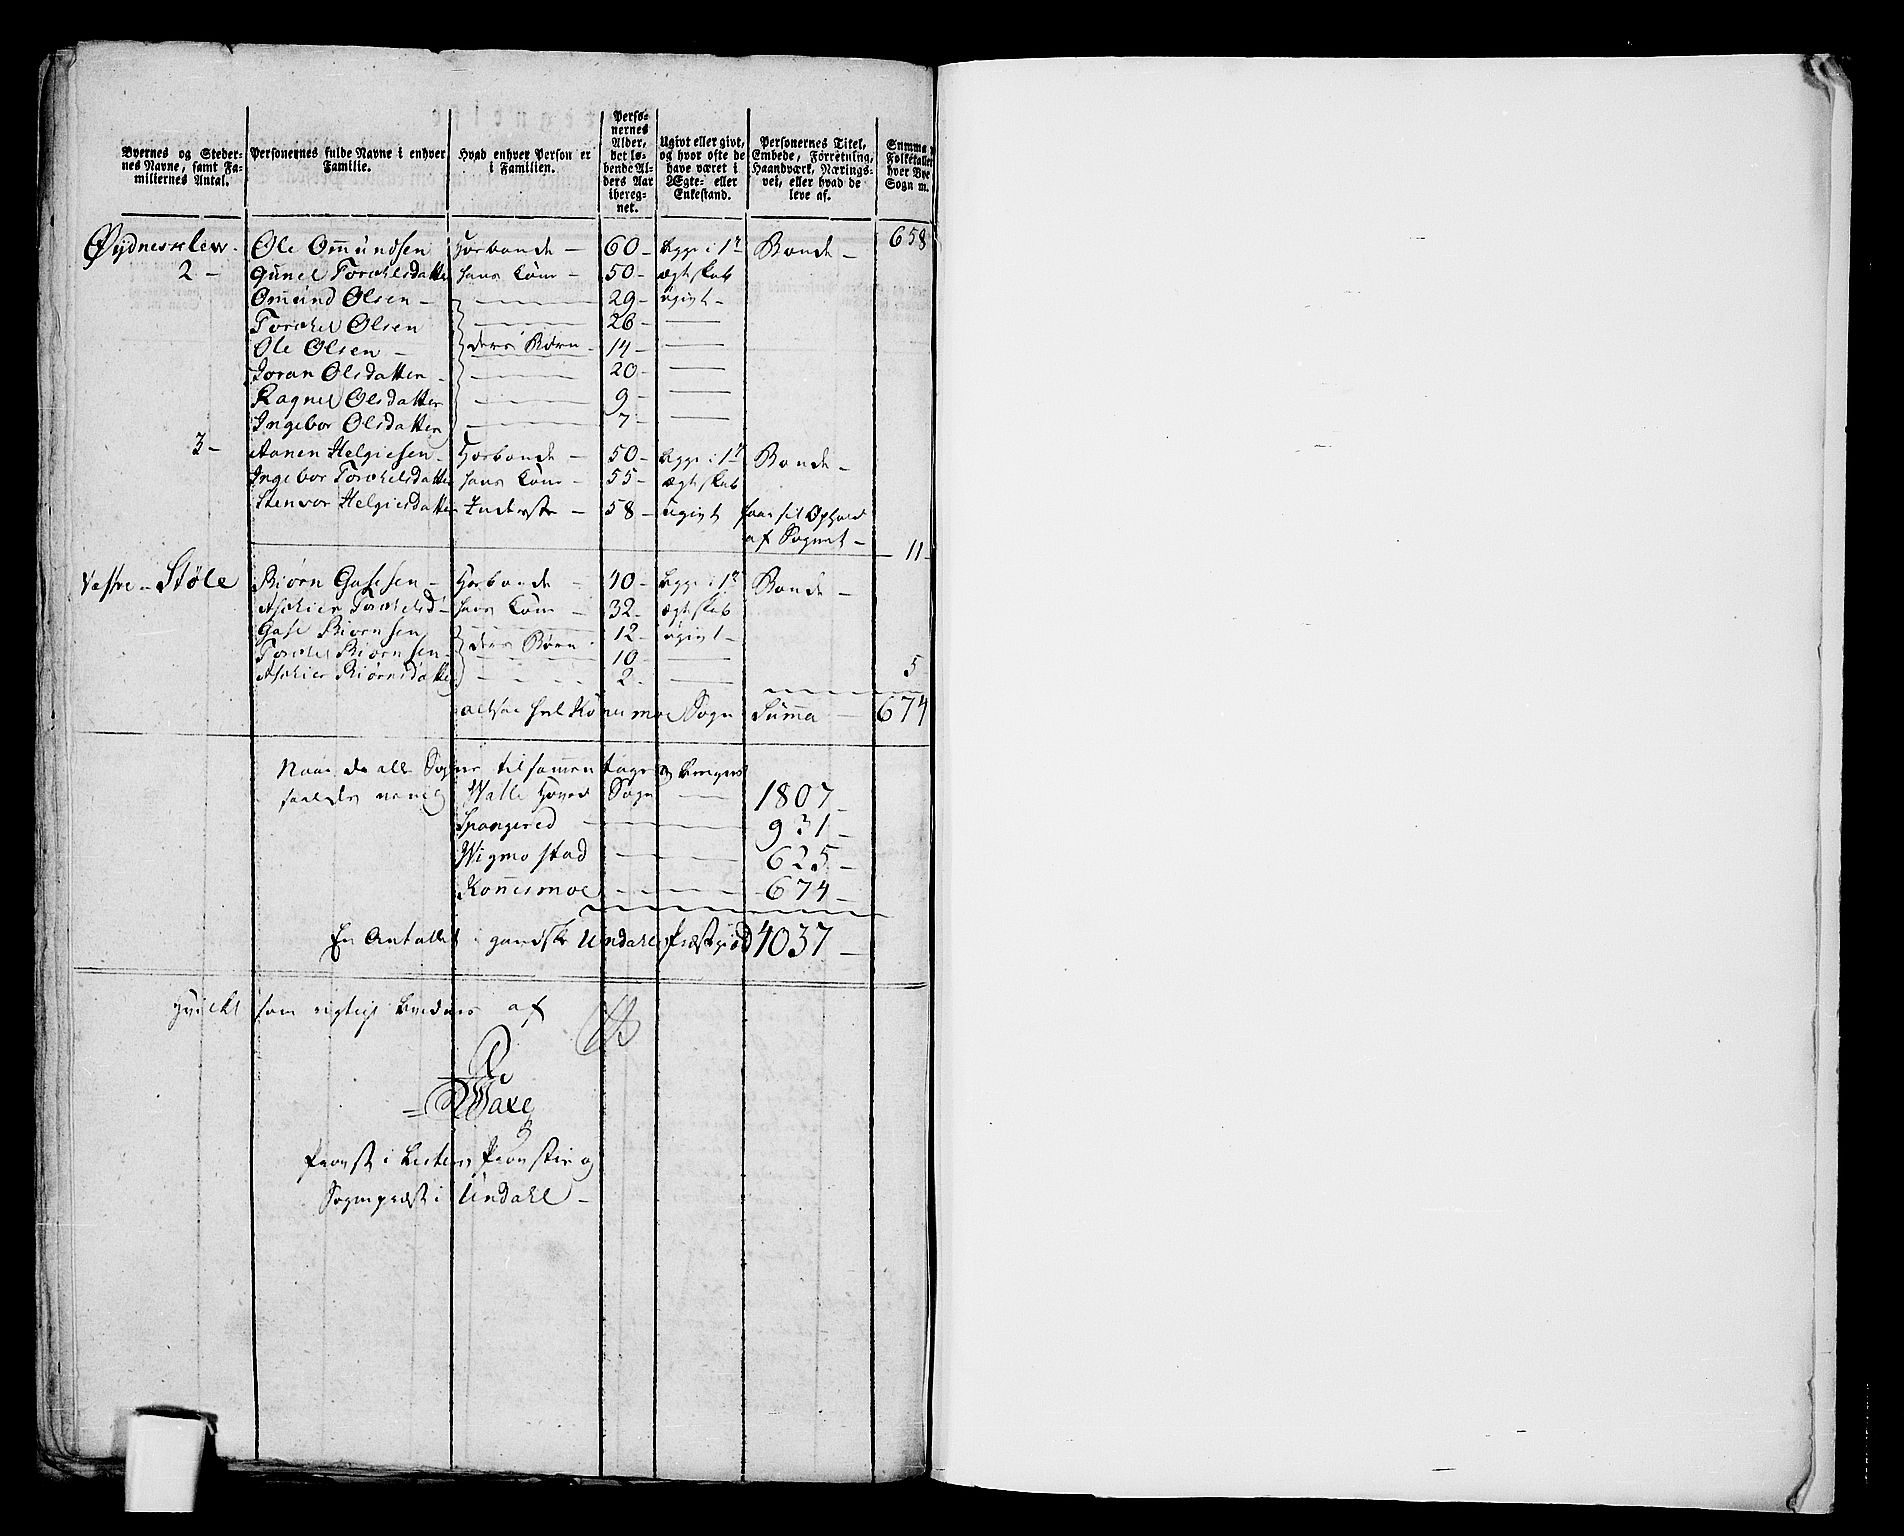 Byernes og Stedernes Navne, samt Familiernes Antal. | Personernes fulde Navne i enhver Familie. | Hvad enhver Person er i Familien. | Personernes Alder, det løbende Alders Aar iberegnet. | Ugivt eller givt, og hvor ofte de have været i Ægte- eller Enkestand. | Personernes Titel, Embede, Forretning, Haandværk, Næringsvei, eller hvad de leve af. | Summa Folketallet hver Bye Sogn m.
658
Øydneskleiv - Ole Omundsen Hosbonde - 60 - begge i 1te Bonde -
2 - Gunel Torckelsdatter hans Kone - 50 - ægteskab
Omund Olsen - 29 - ugivt -
Torckel Olsen 26 -
Ole Olsen - deres Børn - 14 -
Joran Olsdatter - 20 -
Ragnel Olsdatter 9 -
Ingebor Olsdatter 7 -
3 - Aanen Helgiesen - Hosbonde - 50 - begge i 1te Bonde -
Ingebor Torckelsdatter hans Kone - 55 - ægteskab
Stensor Helgiesdatter Inderste - 58 - ugivt faar sit Ophold
af Sognet - 11 -
Vestre Støle Biørn Gasesen - Hosbonde - 40 - begge i 1te Bonde -
Aschier Torckelsd - hans Kone - 32 - ægteskab
Gase Biørnsen 12 - ugivt -
Torckel Biørnsen - deres Børn - 10 -
Aschier Biørnsdatter 2 - 5
altsaa heele Konismoe Sogn Summa - 674
Naar da alle Sogne tilsammen tages og beregnes
saaledes nemlig Walle Hoved Sogn - 1807 -
Spangereid - 931 -
Wigmostad - 625 -
Konnismoe - 674 -
Er Antallet i gandske Undahls Præstegield 4037 -
Hvilket som rigtigt bevidnes af
Provst i Listers Provstie og
Sognepræst i Undahl -